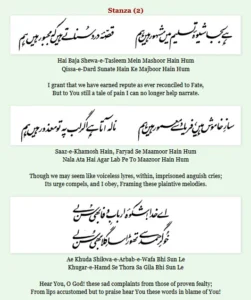 Stanza (2)
ہے بجا شیوۂ تسلیم میں مشہور ہیں ہم
قصۂ درد سناتے ہیں کہ مجبور ہیں ہم
Hai Baja Shewa-e-Tasleem Mein Mashoor Hain Hum
Qissa-e-Dard Sunate Hain Ke Majboor Hain Hum
I grant that we have earned repute as ever reconciled to Fate,
But to You still a tale of pain I can no longer help narrate.
ساز خاموش ہیں، فریاد سے معمور ہیں ہم
نالہ آتا ہے اگر لب پہ تو معذور ہیں ہم
Saaz-e-Khamosh Hain, Faryad Se Maamoor Hain Hum
Nala Ata Hai Agar Lab Pe To Maazoor Hain Hum
Though we may seem like voiceless lyres, within, imprisoned anguish cries;
Its urge compels, and I obey, Framing these plaintive melodies.
اے خدا شکوۂ ارباب وفا بھی سن لے
خوگر حمد سے تھوڑا سا گلا بھی سن لے
Ae Khuda Shikva-e-Arbab-e-Wafa Bhi Sun Le
Khugar-e-Hamd Se Thora Sa Gila Bhi Sun Le
Hear You, O God! these sad complaints from those of proven fealty;
From lips accustomed but to praise hear You these words in blame of You!